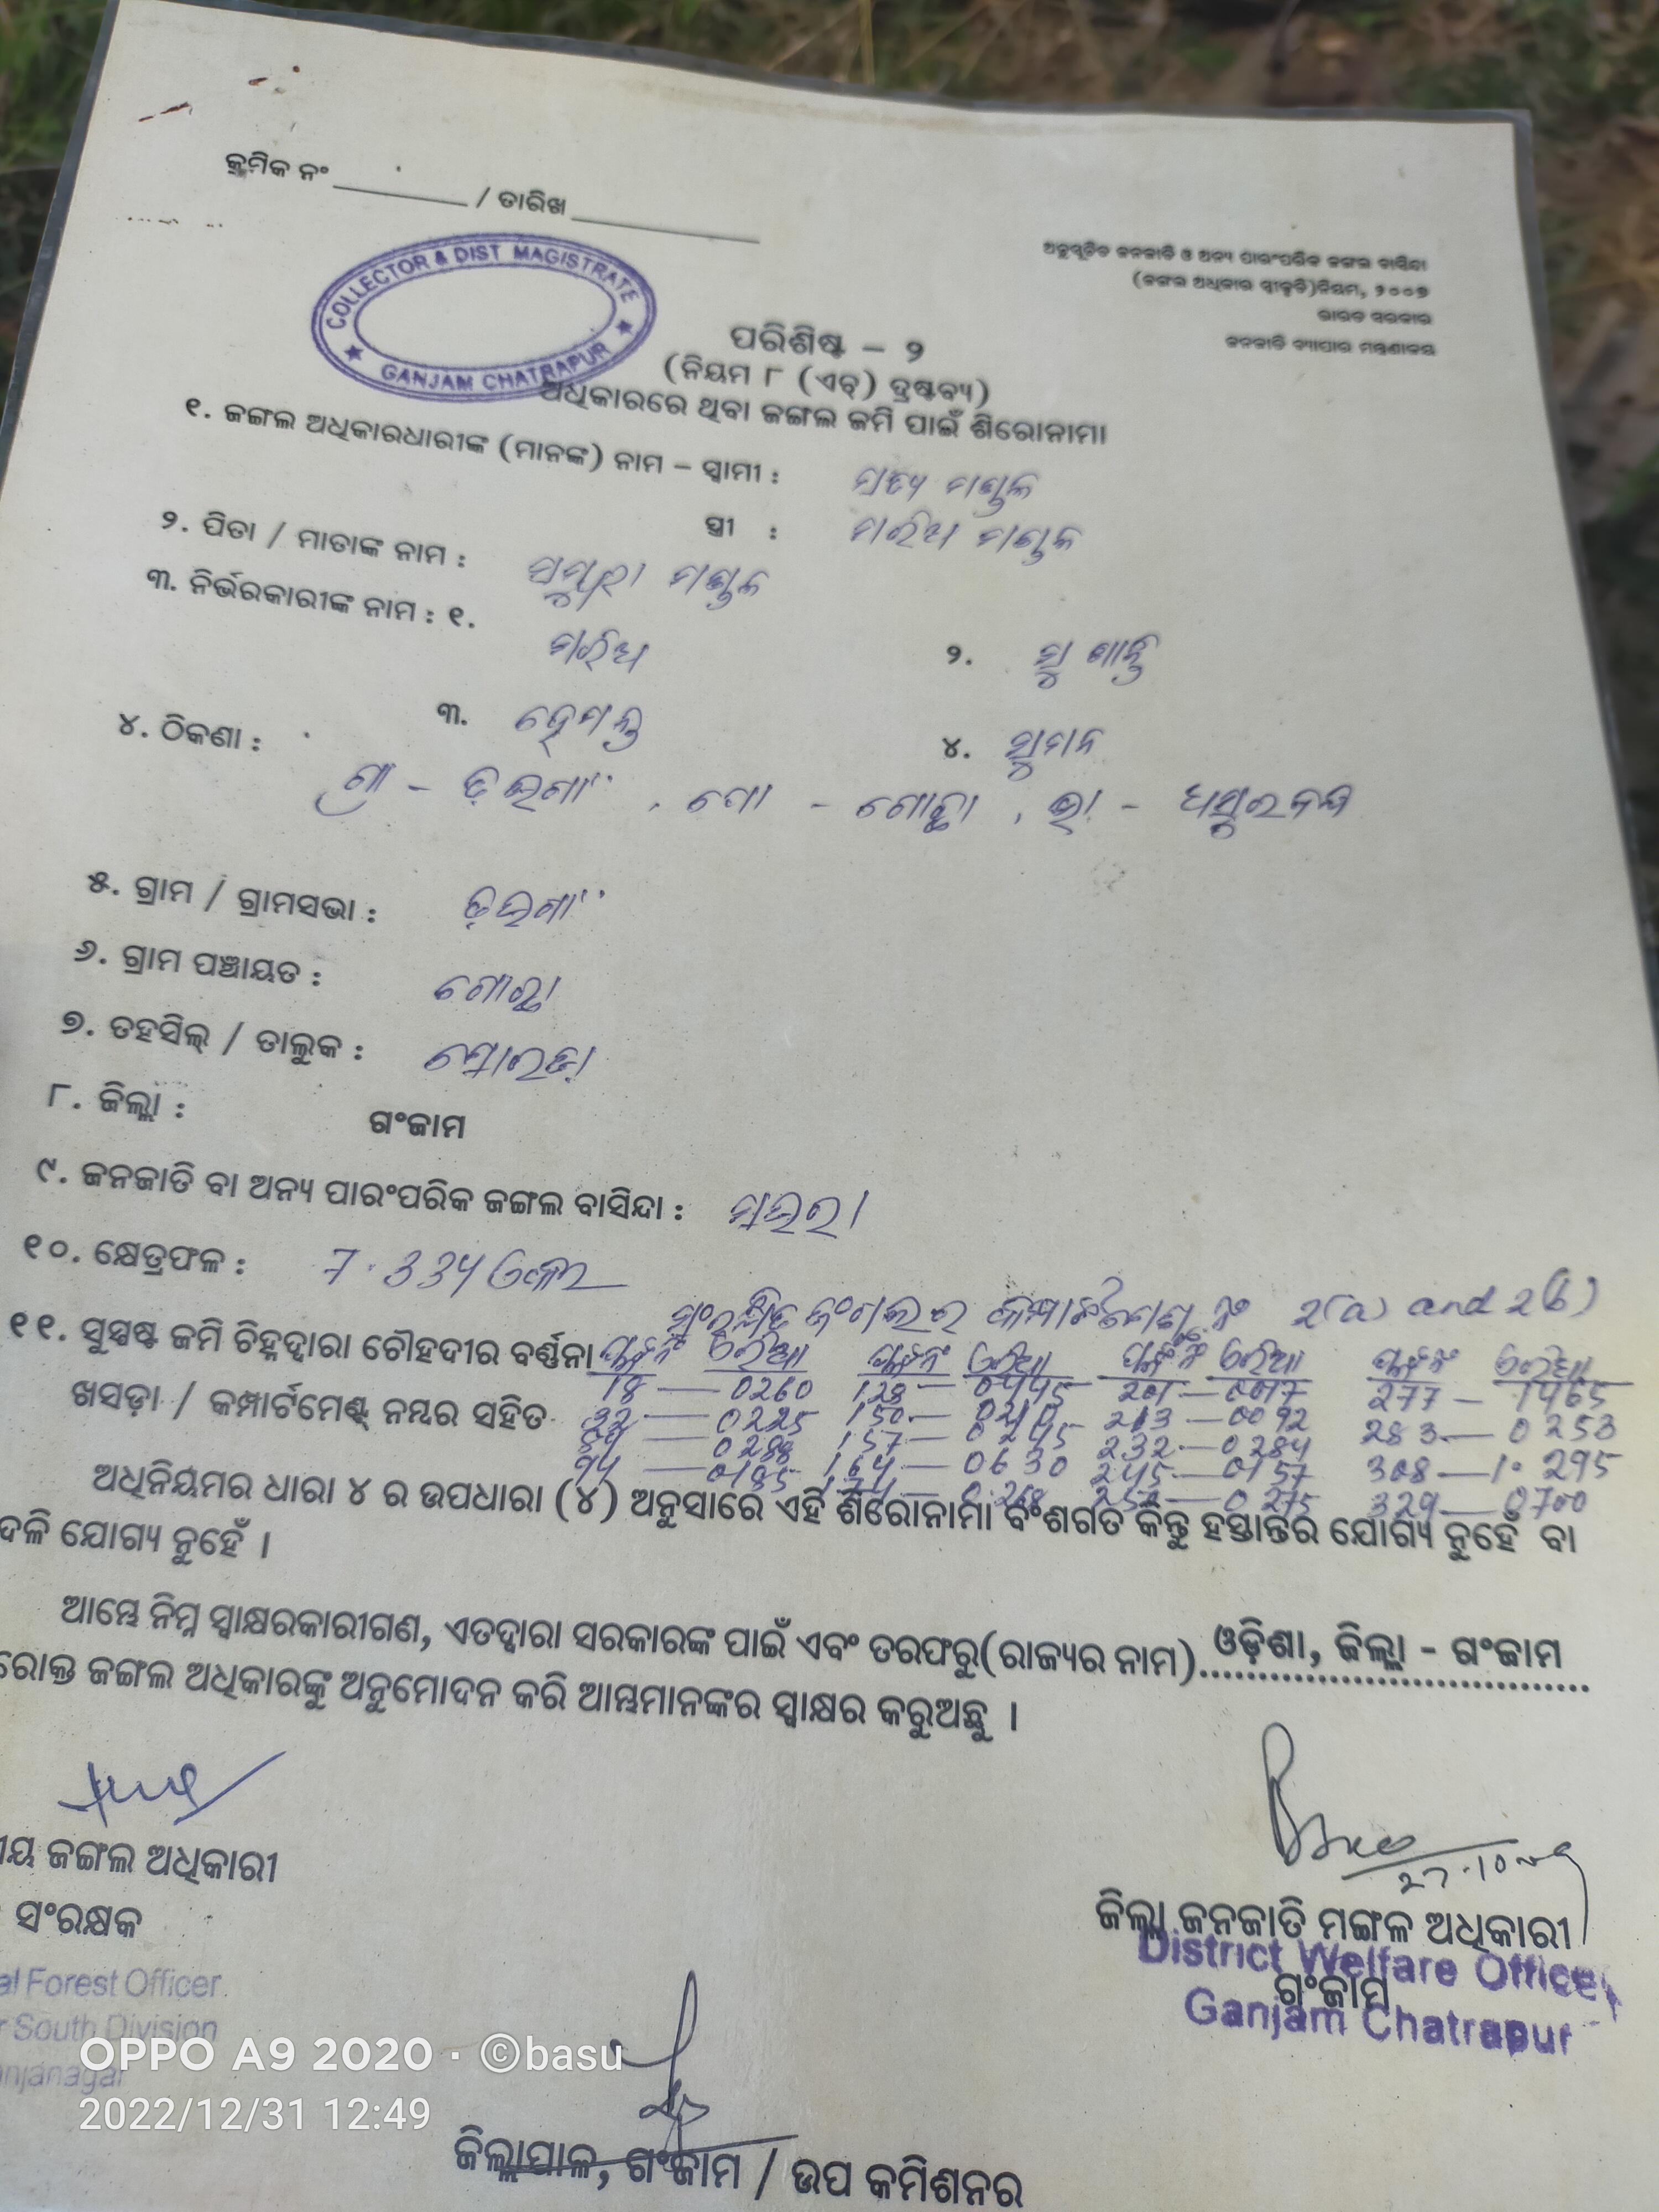 କ୍ରମିକ ନଂ / ତାରିଖ
ଅନୁସୂଚିତ ଜନଜାତି ଓ ଅନ୍ୟ ପାରଂପରିକ ଜଙ୍ଗଲ ବାସିନ୍ଦା
(ଜଙ୍ଗଲ ଅଧିକାର ସ୍ୱୀକୃତି)ନିୟମ, ୨୦୦୭
ଭାରତ ସରକାର
ଜନଜାତି ବ୍ୟାପାର ମନ୍ତ୍ରଣାଳୟ
COLLECTOR & DIST MAGISTRATE
GANJAM CHATRAPUR
ପରିଶିଷ୍ଟ – ୨
(ନିୟମ ୮ (ଏଚ୍) ଦ୍ରଷ୍ଟବ୍ୟ)
ଅଧିକାରରେ ଥିବା ଜଙ୍ଗଲ ଜମି ପାଇଁ ଶିରୋନାମା
୧. ଜଙ୍ଗଲ ଅଧିକାରଧାରୀଙ୍କ (ମାନଙ୍କ) ନାମ – ସ୍ୱାମୀ : ସତ୍ୟ ମଣ୍ଡଳ
ସ୍ତ୍ରୀ : ମରିଅ ମଣ୍ଡଳ
୨. ପିତା / ମାତାଙ୍କ ନାମ : ମଣ୍ଡଳ
୩. ନିର୍ଭରକାରୀଙ୍କ ନାମ : ୧. ମରିଅ ୨. ସୁଶାନ୍ତି
୩. ହେମନ୍ତ ୪. ସୁମନ
୪. ଠିକଣା :
ଗ୍ରା –
୫. ଗ୍ରାମ / ଗ୍ରାମସଭା :
୬. ଗ୍ରାମ ପଞ୍ଚାୟତ :
୭. ତହସିଲ୍ / ତାଲୁକ : ସୋରଡ଼ା
୮. ଜିଲ୍ଲା : ଗଂଜାମ
୯. ଜନଜାତି ବା ଅନ୍ୟ ପାରଂପରିକ ଜଙ୍ଗଲ ବାସିନ୍ଦା : ସଉରା
୧୦. କ୍ଷେତ୍ରଫଳ :
ସଂରକ୍ଷିତ ଜଂଗଲର କମ୍ପାର୍ଟମେଣ୍ଟ ନଂ 2(a) and 2(b)
୧୧. ସୁସ୍ପଷ୍ଟ ଜମି ଚିହ୍ନଦ୍ୱାରା ଚୌହଦୀର ବର୍ଣ୍ଣନା ପ୍ଲଟ ନଂ ଏରିଆ ପ୍ଲଟ ନଂ ଏରିଆ ପ୍ଲଟ ନଂ ଏରିଆ ପ୍ଲଟ ନଂ ଏରିଆ
18 — 0260 128 — 0445 201 — 0017 277 — 1465
ଖସଡ଼ା / କମ୍ପାର୍ଟମେଣ୍ଟ୍ ନମ୍ବର ସହିତ 32 — 0225 150 — 213 — 0092 283 — 0253
0288 157 — 0245 232 — 0284 308 — 1.295
94 — 0185 164 — 0630 245 — 0157 329 — 0700
0.268 — 0275
ଅଧିନିୟମର ଧାରା ୪ ର ଉପଧାରା (୪) ଅନୁସାରେ ଏହି ଶିରୋନାମା ବଂଶଗତ କିନ୍ତୁ ହସ୍ତାନ୍ତର ଯୋଗ୍ୟ ନୁହେଁ ବା
ଦଳି ଯୋଗ୍ୟ ନୁହେଁ ।
ଆମ୍ଭେ ନିମ୍ନ ସ୍ୱାକ୍ଷରକାରୀଗଣ, ଏତଦ୍ୱାରା ସରକାରଙ୍କ ପାଇଁ ଏବଂ ତରଫରୁ(ରାଜ୍ୟର ନାମ) ଓଡ଼ିଶା, ଜିଲ୍ଲା - ଗଂଜାମ
ରୋକ୍ତ ଜଙ୍ଗଲ ଅଧିକାରଙ୍କୁ ଅନୁମୋଦନ କରି ଆମ୍ଭମାନଙ୍କର ସ୍ୱାକ୍ଷର କରୁଅଛୁ ।
27.10
ୀୟ ଜଙ୍ଗଲ ଅଧିକାରୀ
ସଂରକ୍ଷକ
al Forest Officer
r South Division
njanagar
ଜିଲ୍ଲା ଜନଜାତି ମଙ୍ଗଳ ଅଧିକାରୀ
District Welfare Officer
ଗଂଜାମ
Ganjam Chatrapur
ଜିଲ୍ଲାପାଳ, ଗଂଜାମ / ଉପ କମିଶନର
OPPO A9 2020 · ©basu
2022/12/31 12:49